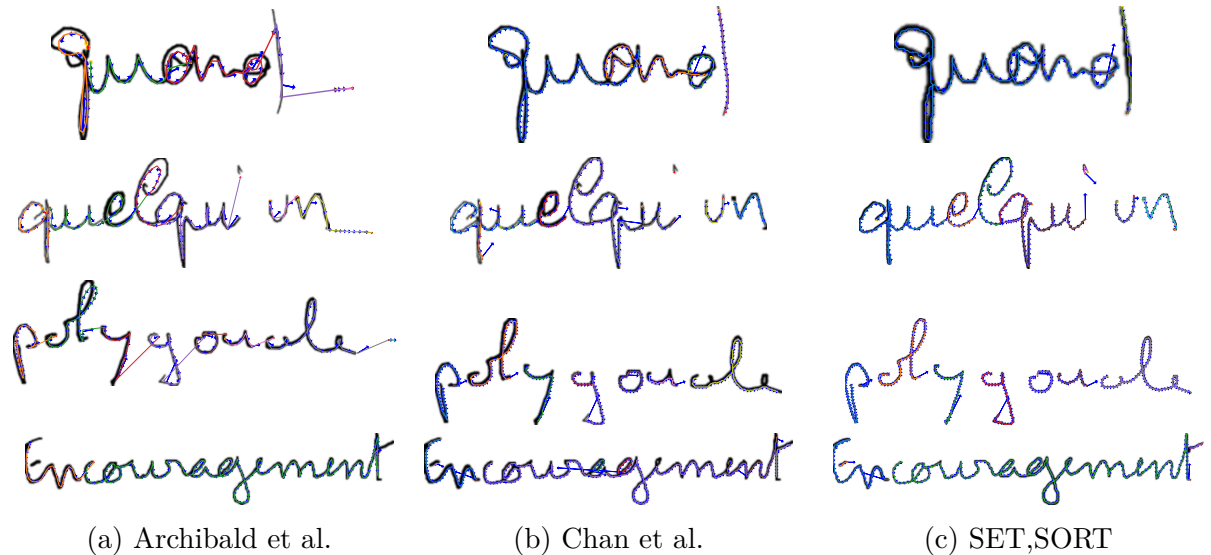 quand quand quand
quelqu'un quelqu'un quelqu'un
polygonale polygonale polygonale
Encouragement Encouragement Encouragement
(a) Archibald et al. (b) Chan et al. (c) SET,SORT